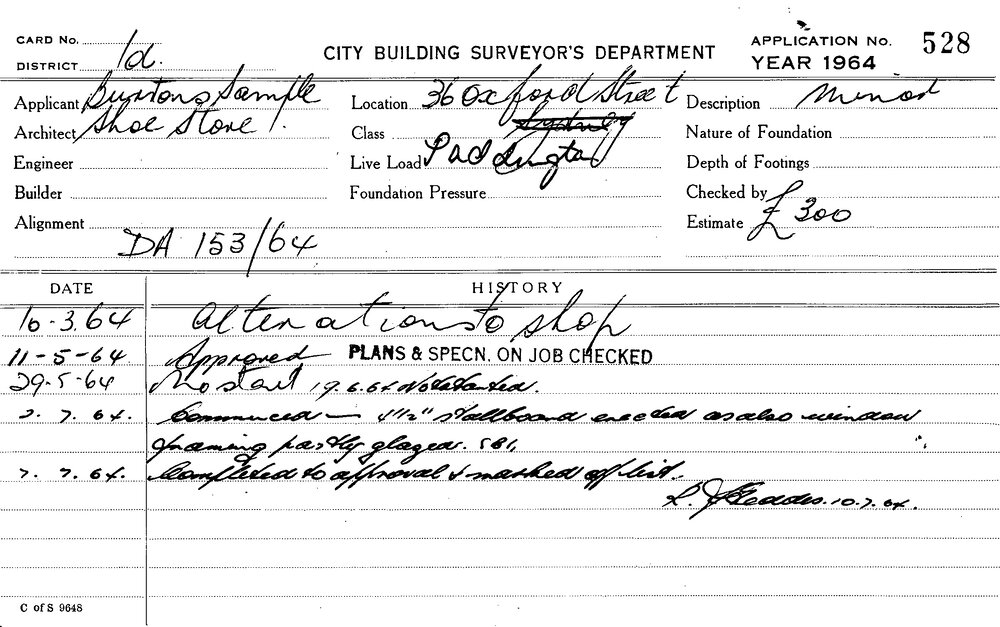 CARD No.
CITY BUILDING SURVEYOR'S DEPARTMENT
APPLICATION No. 528
DISTRICT 1d.
YEAR 1964
Applicant Burtons Sample
Location 36 Oxford Street
Description Minor
Architect Shoe Store
Class Sydney
Nature of Foundation
Engineer
Live Load Paddington
Depth of Footings
Builder
Foundation Pressure
Checked by
Alignment
Estimate £300
DA 153/64
DATE HISTORY
10.3.64 Alterations to shop
11-5-64 Approved PLANS & SPECN. ON JOB CHECKED
29-5-64 No start 19.6.64 Not started.
2. 7. 64. Commenced — 4½" stallboard erected as also window
framing partly glazed.
7. 7. 64. Completed to approval & marked off list.
10.7.64.
C of S 9648